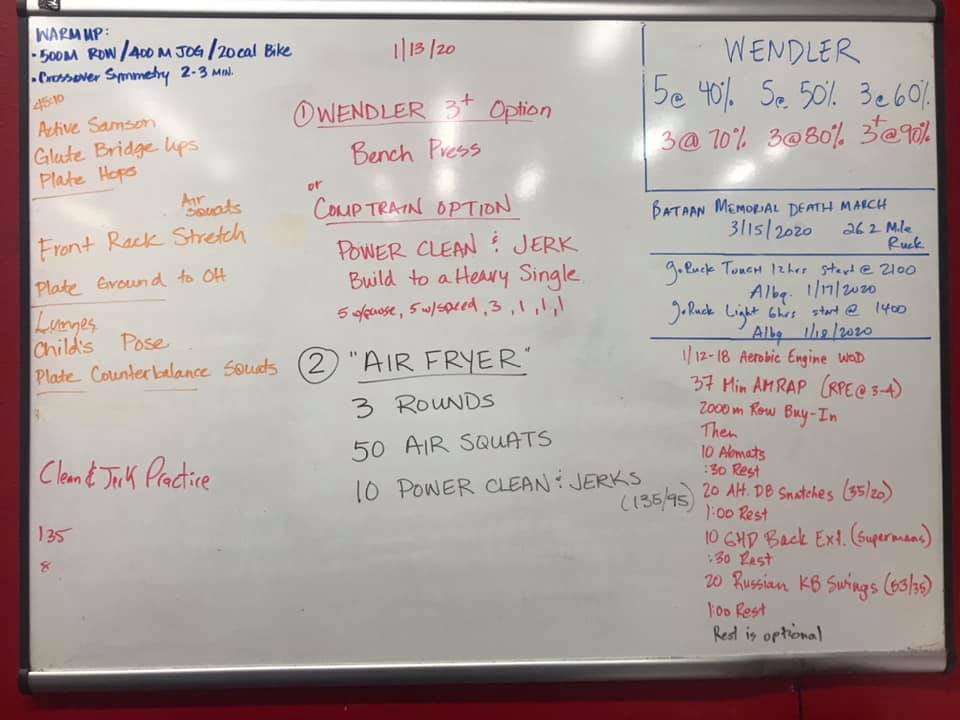 WARM UP:
• 500M ROW / 400 M JOG / 20 cal Bike
• Crossover Symmetry 2-3 MIN.
45:10
Active Samson
Glute Bridge Ups
Plate Hops
Air
Squats
Front Rack Stretch
Plate Ground to OH
Lunges
Child's Pose
Plate Counterbalance Squats
3.
Clean & Jerk Practice
135
8
1/13/20
① WENDLER 3+ Option
Bench Press
or
COMPTRAIN OPTION
POWER CLEAN & JERK
Build to a Heavy Single
5 w/pause, 5 w/speed, 3, 1, 1, 1
② "AIR FRYER"
3 ROUNDS
50 AIR SQUATS
10 POWER CLEAN & JERKS
(135/95)
WENDLER
5@ 40% 5@ 50% 3@ 60%
3@ 70% 3@ 80% 3+@ 90%
BATAAN MEMORIAL DEATH MARCH
3/15/2020 26.2 Mile
Ruck
goRuck Tough 12hrs start @ 2100
Albq. 1/17/2020
goRuck Light 6hrs start @ 1400
Albq 1/18/2020
1/12-18 Aerobic Engine WOD
37 Min AMRAP (RPE @ 3-4)
2000m Row Buy-In
Then
10 Abmats
:30 Rest
20 Alt. DB Snatches (35/20)
1:00 Rest
10 GHD Back Ext. (Supermans)
:30 Rest
20 Russian KB Swings (53/35)
1:00 Rest
Rest is optional